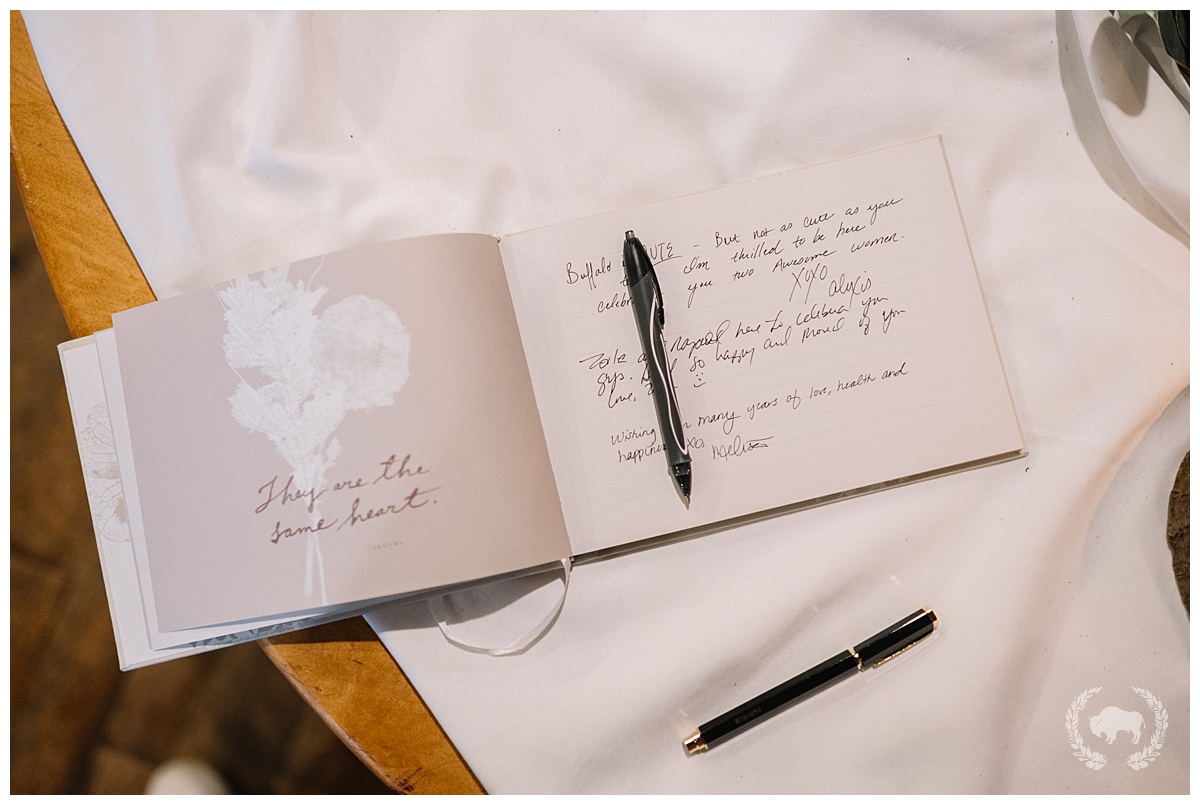 They are the
same heart.
UNKNOWN
Buffalo CUTE - But not as cute as you
I'm thrilled to be here
celebr you two Awesome women.
XOXO
alexis
here to celebrate you
guys. so happy and proud of you
love,
Wishing many years of love, health and
happiness XO, Melissa
PAPYRUS